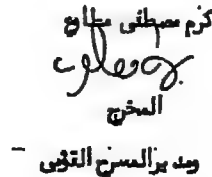 كرم مصطفى مطاوع
المخرج
ومدير المسرح القومى -